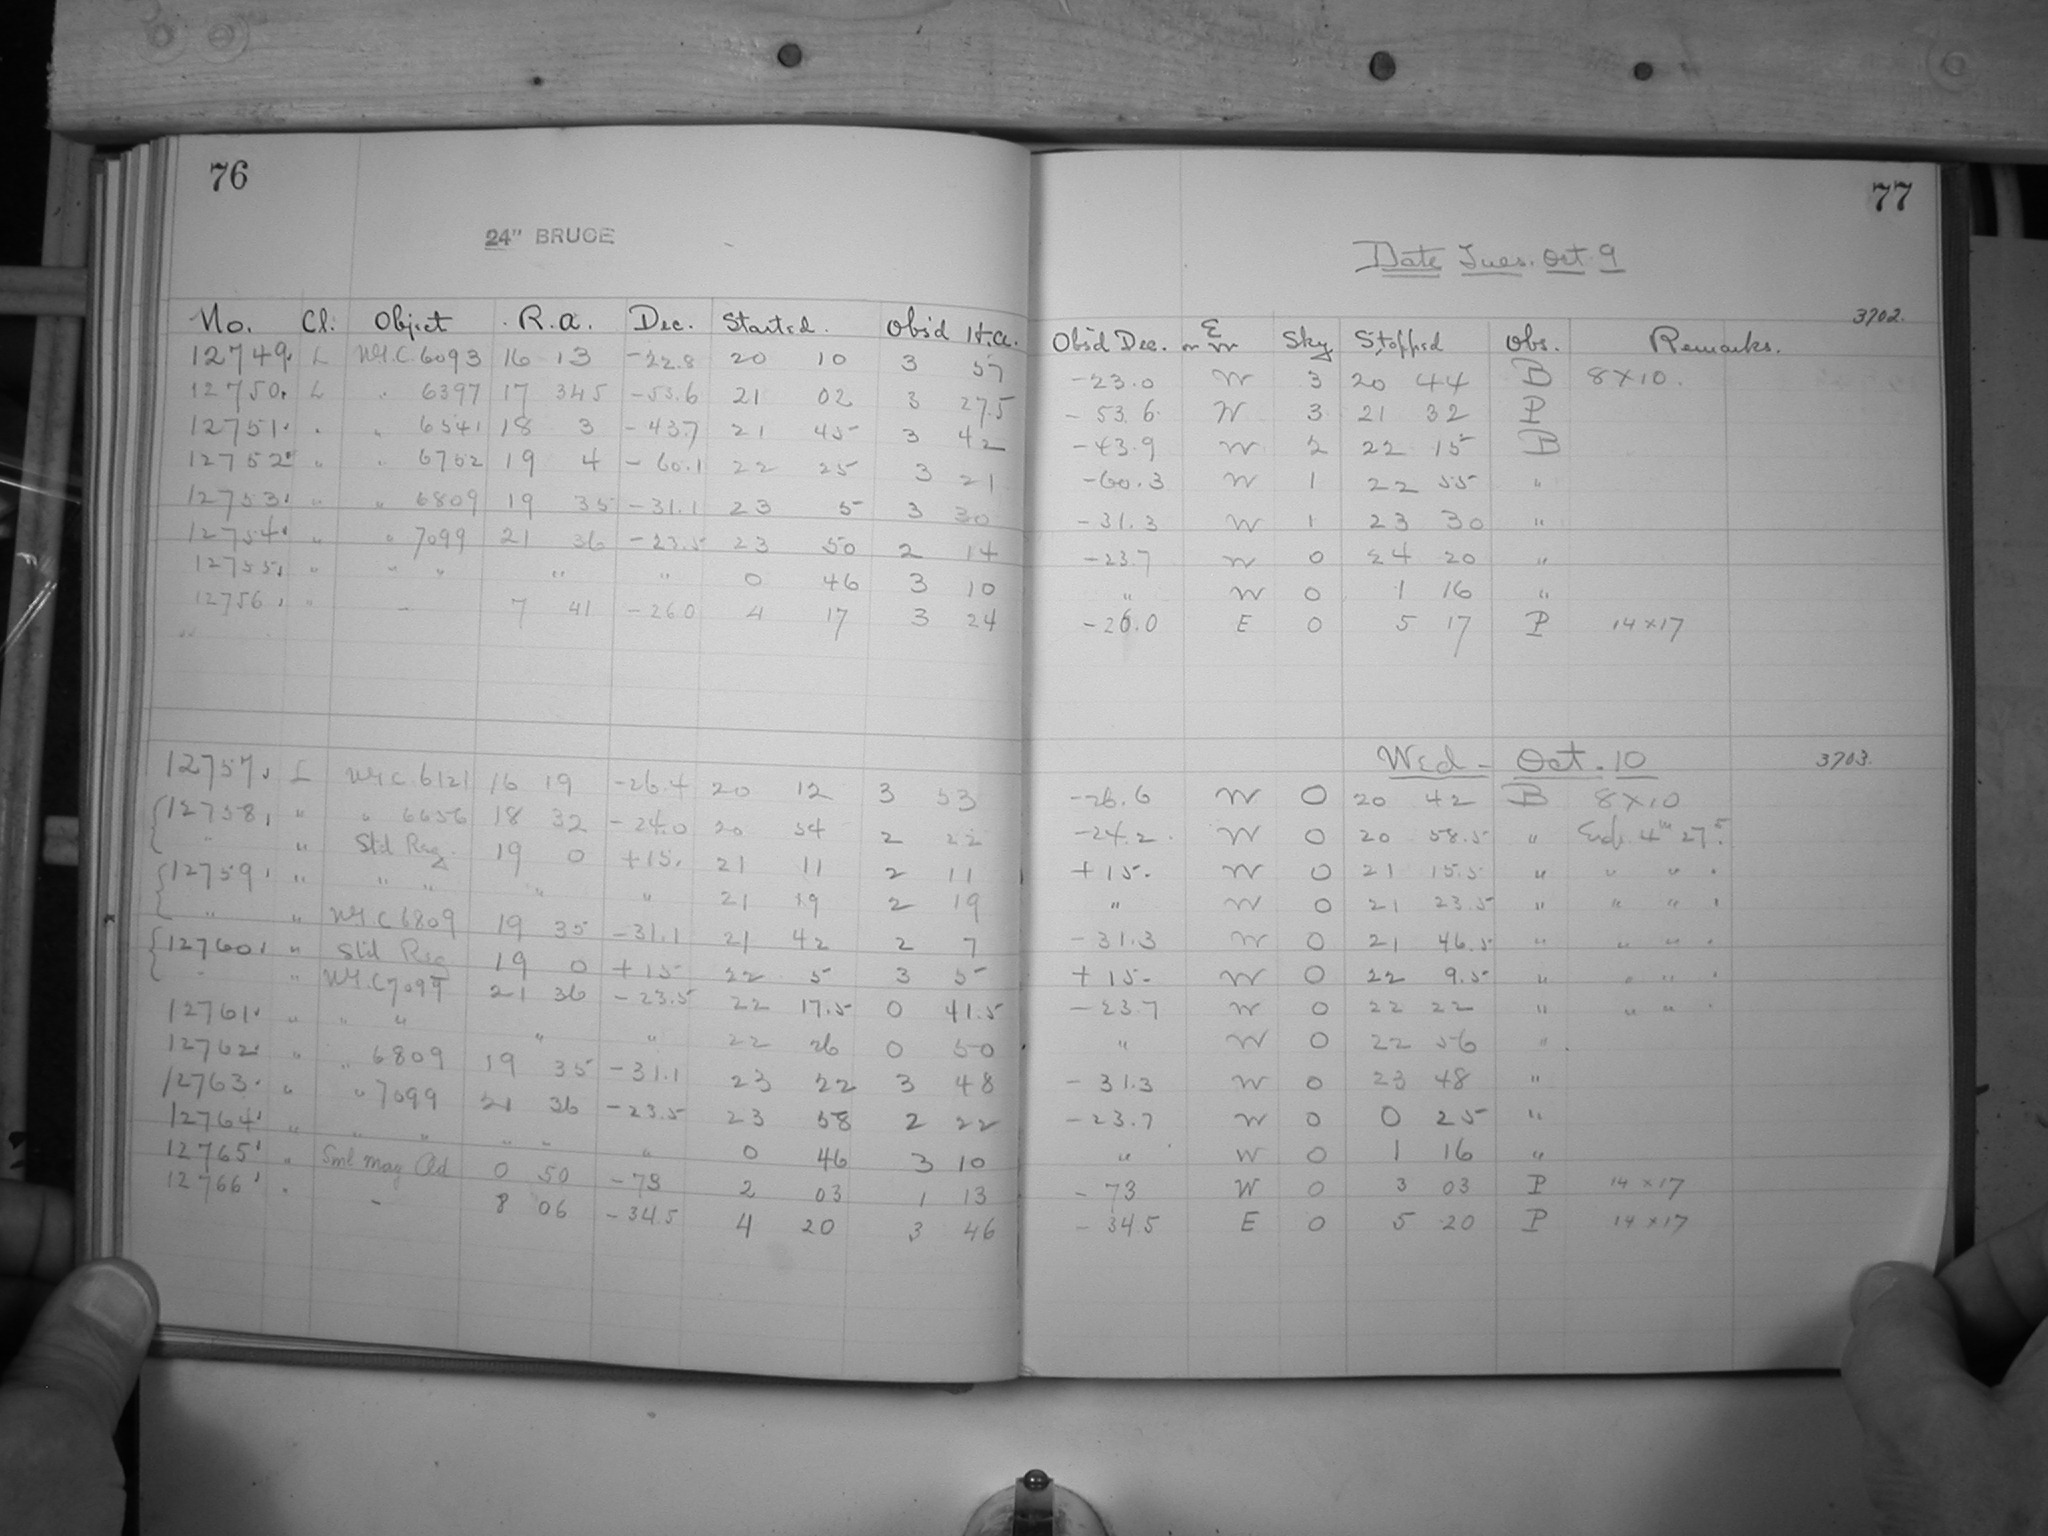 76
77
24" BRUCE
Date Tues. Oct 9
3702.
No. Cl. Object R.a. Dec. Started. Obs'd H.a. Obs'd Dec. E or W Sky Stopped Obs. Remarks.
12749 L N.G.C. 6093 16 13 -22.8 20 10 3 57 -23.0 W 3 20 44 B 8X10.
12750 L " 6397 17 34.5 -53.6 21 02 3 27.5 -53.6 W 3 21 32 P
12751 " " 6541 18 3 -43.7 21 45 3 42 -43.9 W 2 22 15 B
12752 " " 6752 19 4 -60.1 22 25 3 21 -60.3 W 1 22 55 "
12753 " " 6809 19 35 -31.1 23 5 3 30 -31.3 W 1 23 30 "
12754 " " 7099 21 36 -23.5 23 50 2 14 -23.7 W 0 24 20 "
12755 " " " " " 0 46 3 10 " W 0 1 16 "
12756 " - 7 41 -26.0 4 17 3 24 -26.0 E 0 5 17 P 14x17
Wed - Oct. 10
3703.
12757 L N.G.C. 6121 16 19 -26.4 20 12 3 53 -26.6 W 0 20 42 B 8X10
12758 " " 6656 18 32 -24.0 20 54 2 22 -24.2 W 0 20 58.5 " 4m 27s.5
" " Std Reg. 19 0 +15. 21 11 2 11 +15. W 0 21 15.5 " " "
12759 " " " " " 21 19 2 19 " W 0 21 23.5 " " "
" " N.G.C 6809 19 35 -31.1 21 42 2 7 -31.3 W 0 21 46.5 " " "
12760 " Std Reg 19 0 +15 22 5 3 5 +15. W 0 22 9.5 " " "
" " N.G.C 7099 21 36 -23.5 22 17.5 0 41.5 -23.7 W 0 22 22 " " "
12761 " " " " " 22 26 0 50 " W 0 22 56 "
12762 " " 6809 19 35 -31.1 23 22 3 48 -31.3 W 0 23 48 "
12763 " " 7099 21 36 -23.5 23 58 2 22 -23.7 W 0 0 25 "
12764 " " " " " 0 46 3 10 " W 0 1 16 "
12765 " Sml Mag Cld 0 50 -73 2 03 1 13 -73 W 0 3 03 P 14x17
12766 " - 8 06 -34.5 4 20 3 46 -34.5 E 0 5 20 P 14x17